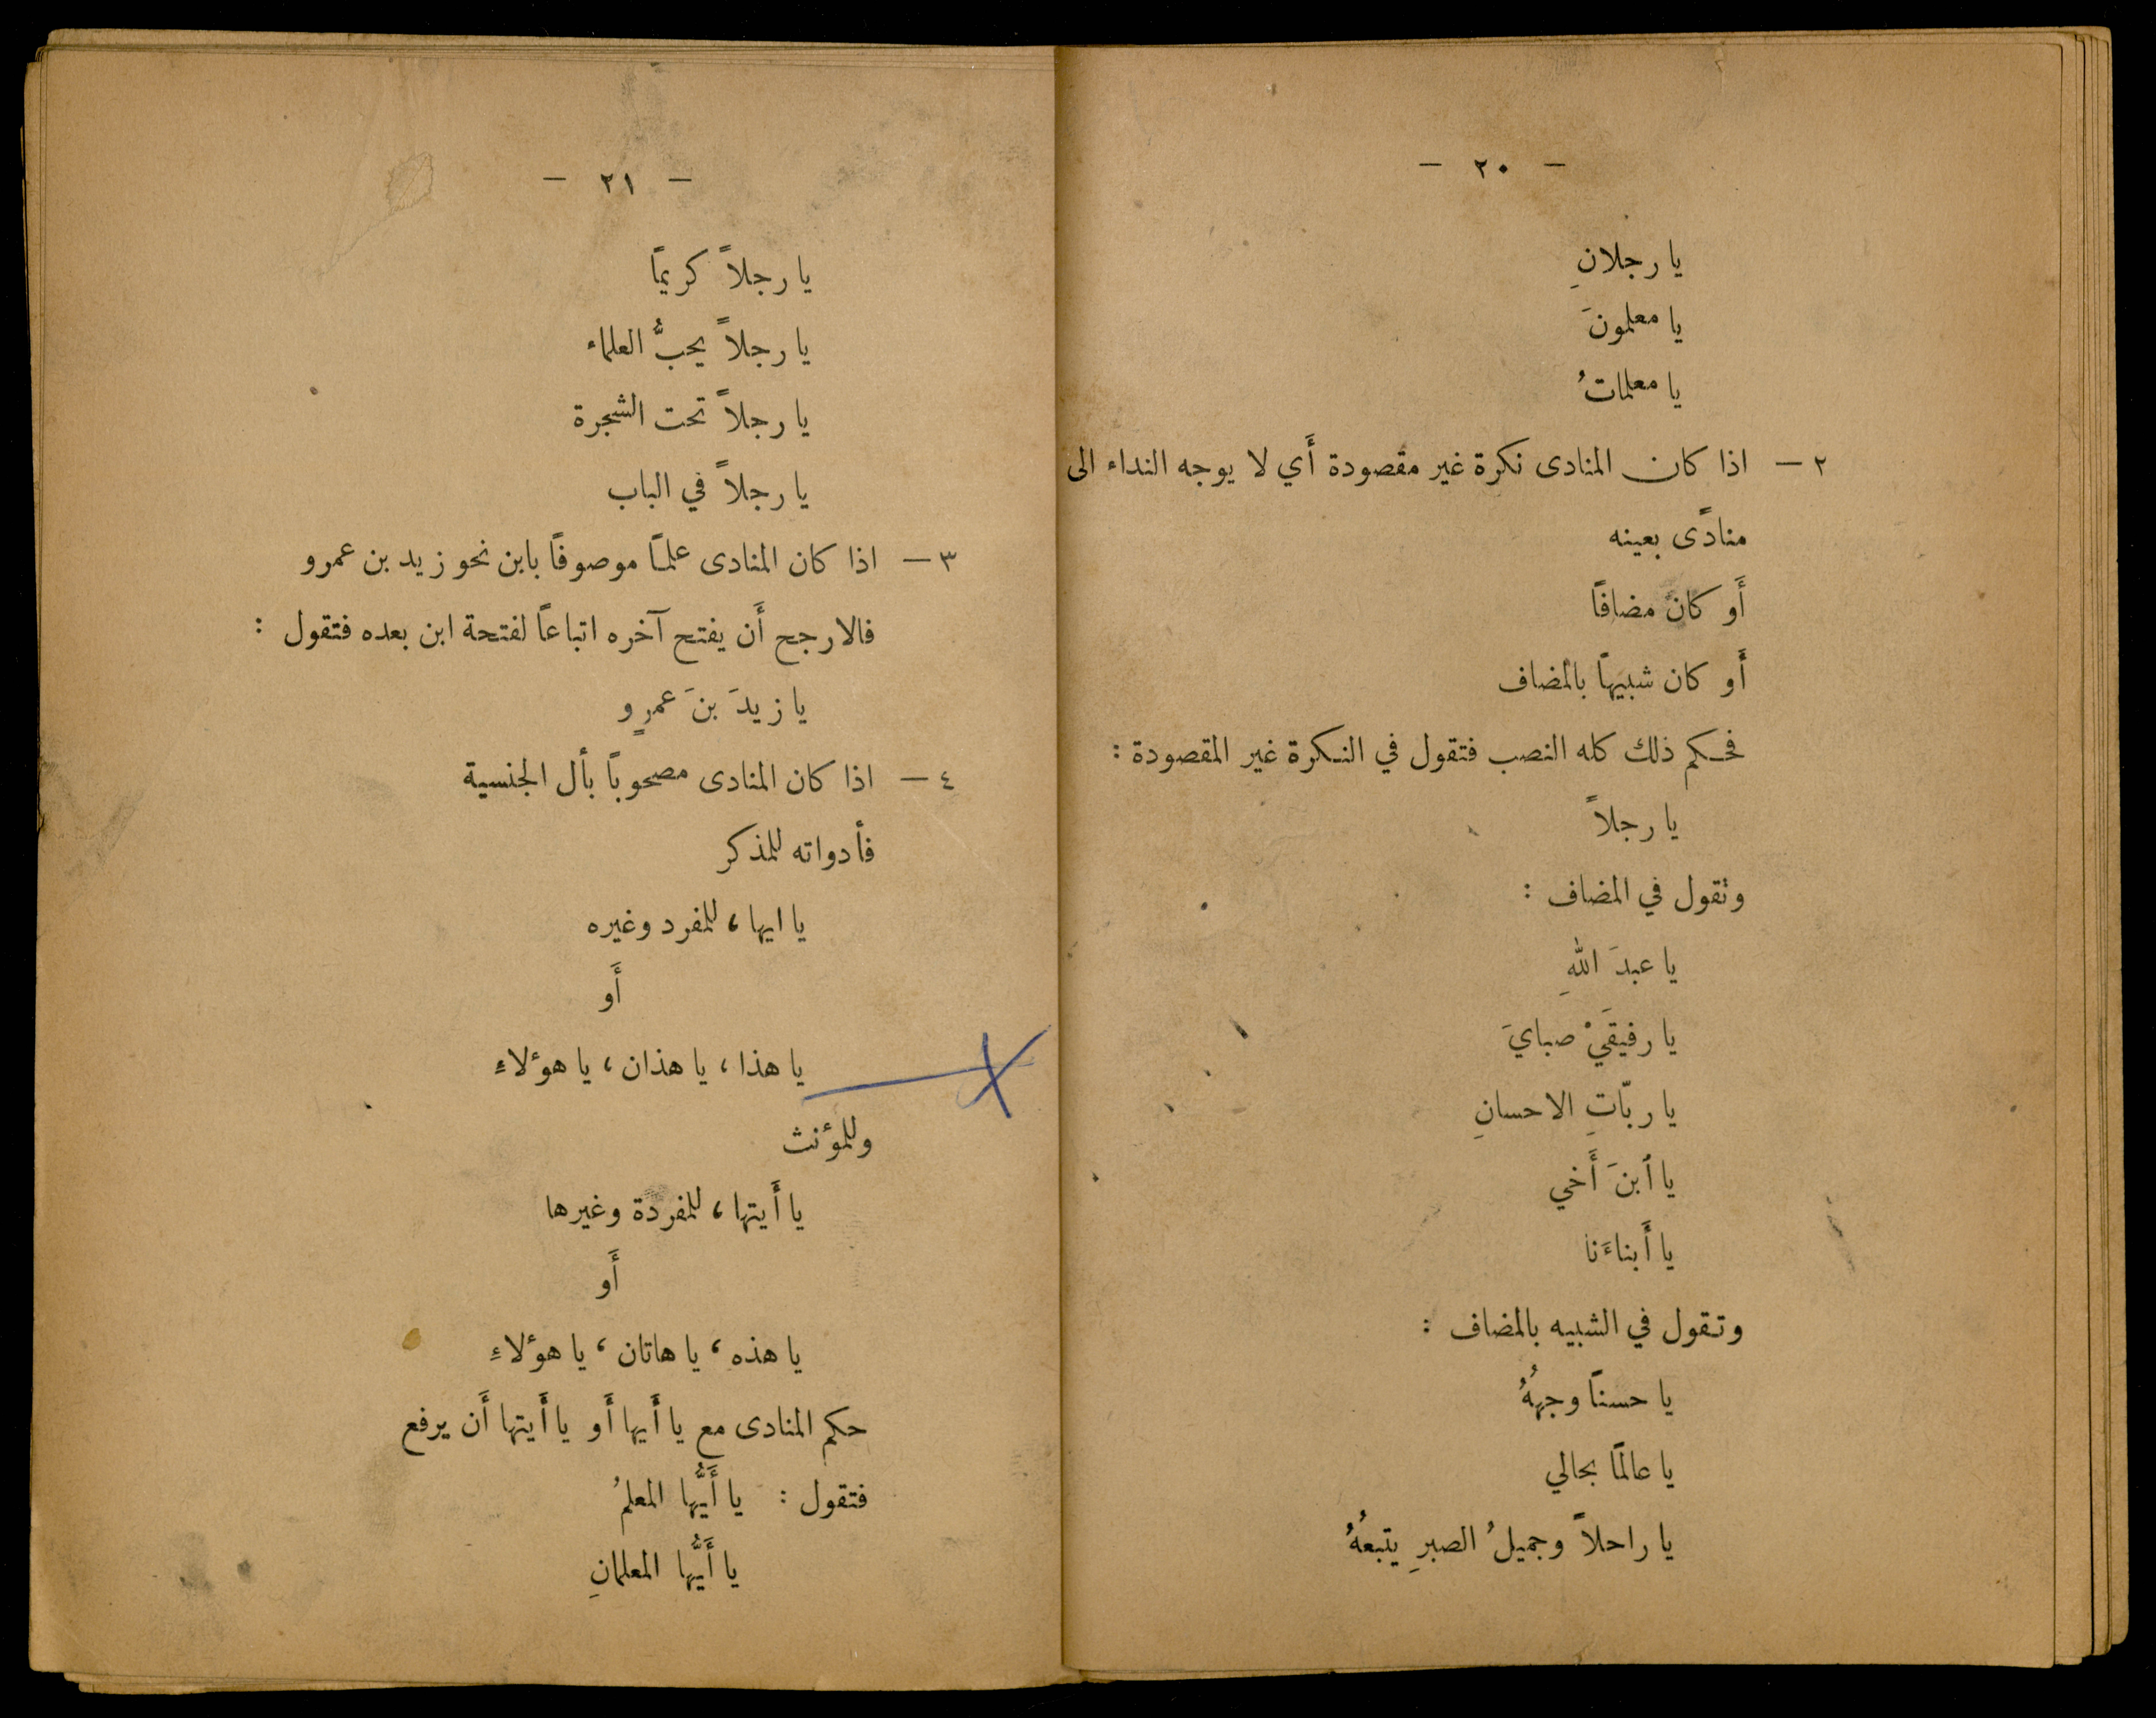 — ٢٠ —
يا رجلانِ
يا معلمونَ
يا معلماتُ
٢ — اذا كان المنادى نكرة غير مقصودة أَي لا يوجه النداء الى
منادًى بعينه
أَو كان مضافًا
أَو كان شبيهًا بالمضاف
فحكم ذلك كله النصب فتقول في النكرة غير المقصودة :
يا رجلاً
وتقول في المضاف :
يا عبدَ اللهِ
يا رفيقَيْ صبايَ
يا ربّاتِ الاحسانِ
يا ٱبنَ أَخي
يا أَبناءَنا
وتقول في الشبيه بالمضاف :
يا حسنًا وجهُهُ
يا عالمًا بحالي
يا راحلاً وجميلُ الصبرِ يتبعُهُ
— ٢١ —
يا رجلاً كريمًا
يا رجلاً يحبُّ العلماء
يا رجلاً تحت الشجرة
يا رجلاً في الباب
٣ — اذا كان المنادى علمًا موصوفًا بابن نحو زيد بن عمرو
فالارجح أَن يفتح آخره اتباعًا لفتحة ابن بعده فتقول :
يا زيدَ بنَ عمرٍو
٤ — اذا كان المنادى مصحوبًا بأل الجنسية
فأدواته للمذكر
يا ايها ، للمفرد وغيره
أَو
يا هذا ، يا هذان ، يا هؤلاءِ
وللمؤنث
يا أَيتها ، للمفردة وغيرها
أَو
يا هذه ، يا هاتان ، يا هؤلاءِ
حكم المنادى مع يا أَيها أَو يا أَيتها أَن يرفع
فتقول : يا أَيُّها المعلمُ
يا أَيُّها المعلمانِ